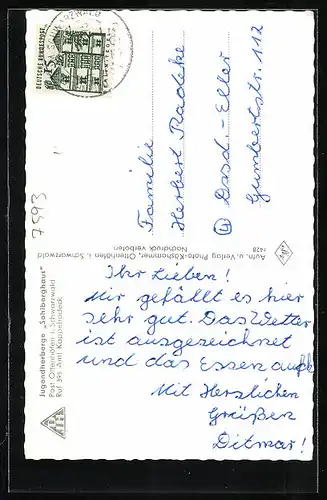 Jugendherberge „Sohlberghaus“
Post Ottenhöfen i. Schwarzwald
Ruf 395 Amt Kappelrodeck
Ihr Lieben!
Mir gefällt es hier
sehr gut. Das Wetter
ist ausgezeichnet
und das Essen auch
Mit Herzlichen
Grüßen
Ditmar!
Aufn. u. Verlag Photo-Käshammer, Ottenhöfen i. Schwarzwald
Nachdruck verboten
1428
DEUTSCHE BUNDESPOST
15
Familie
Herbert Radtke
Dssd.-Eller
Gumbertstr. 112
7593